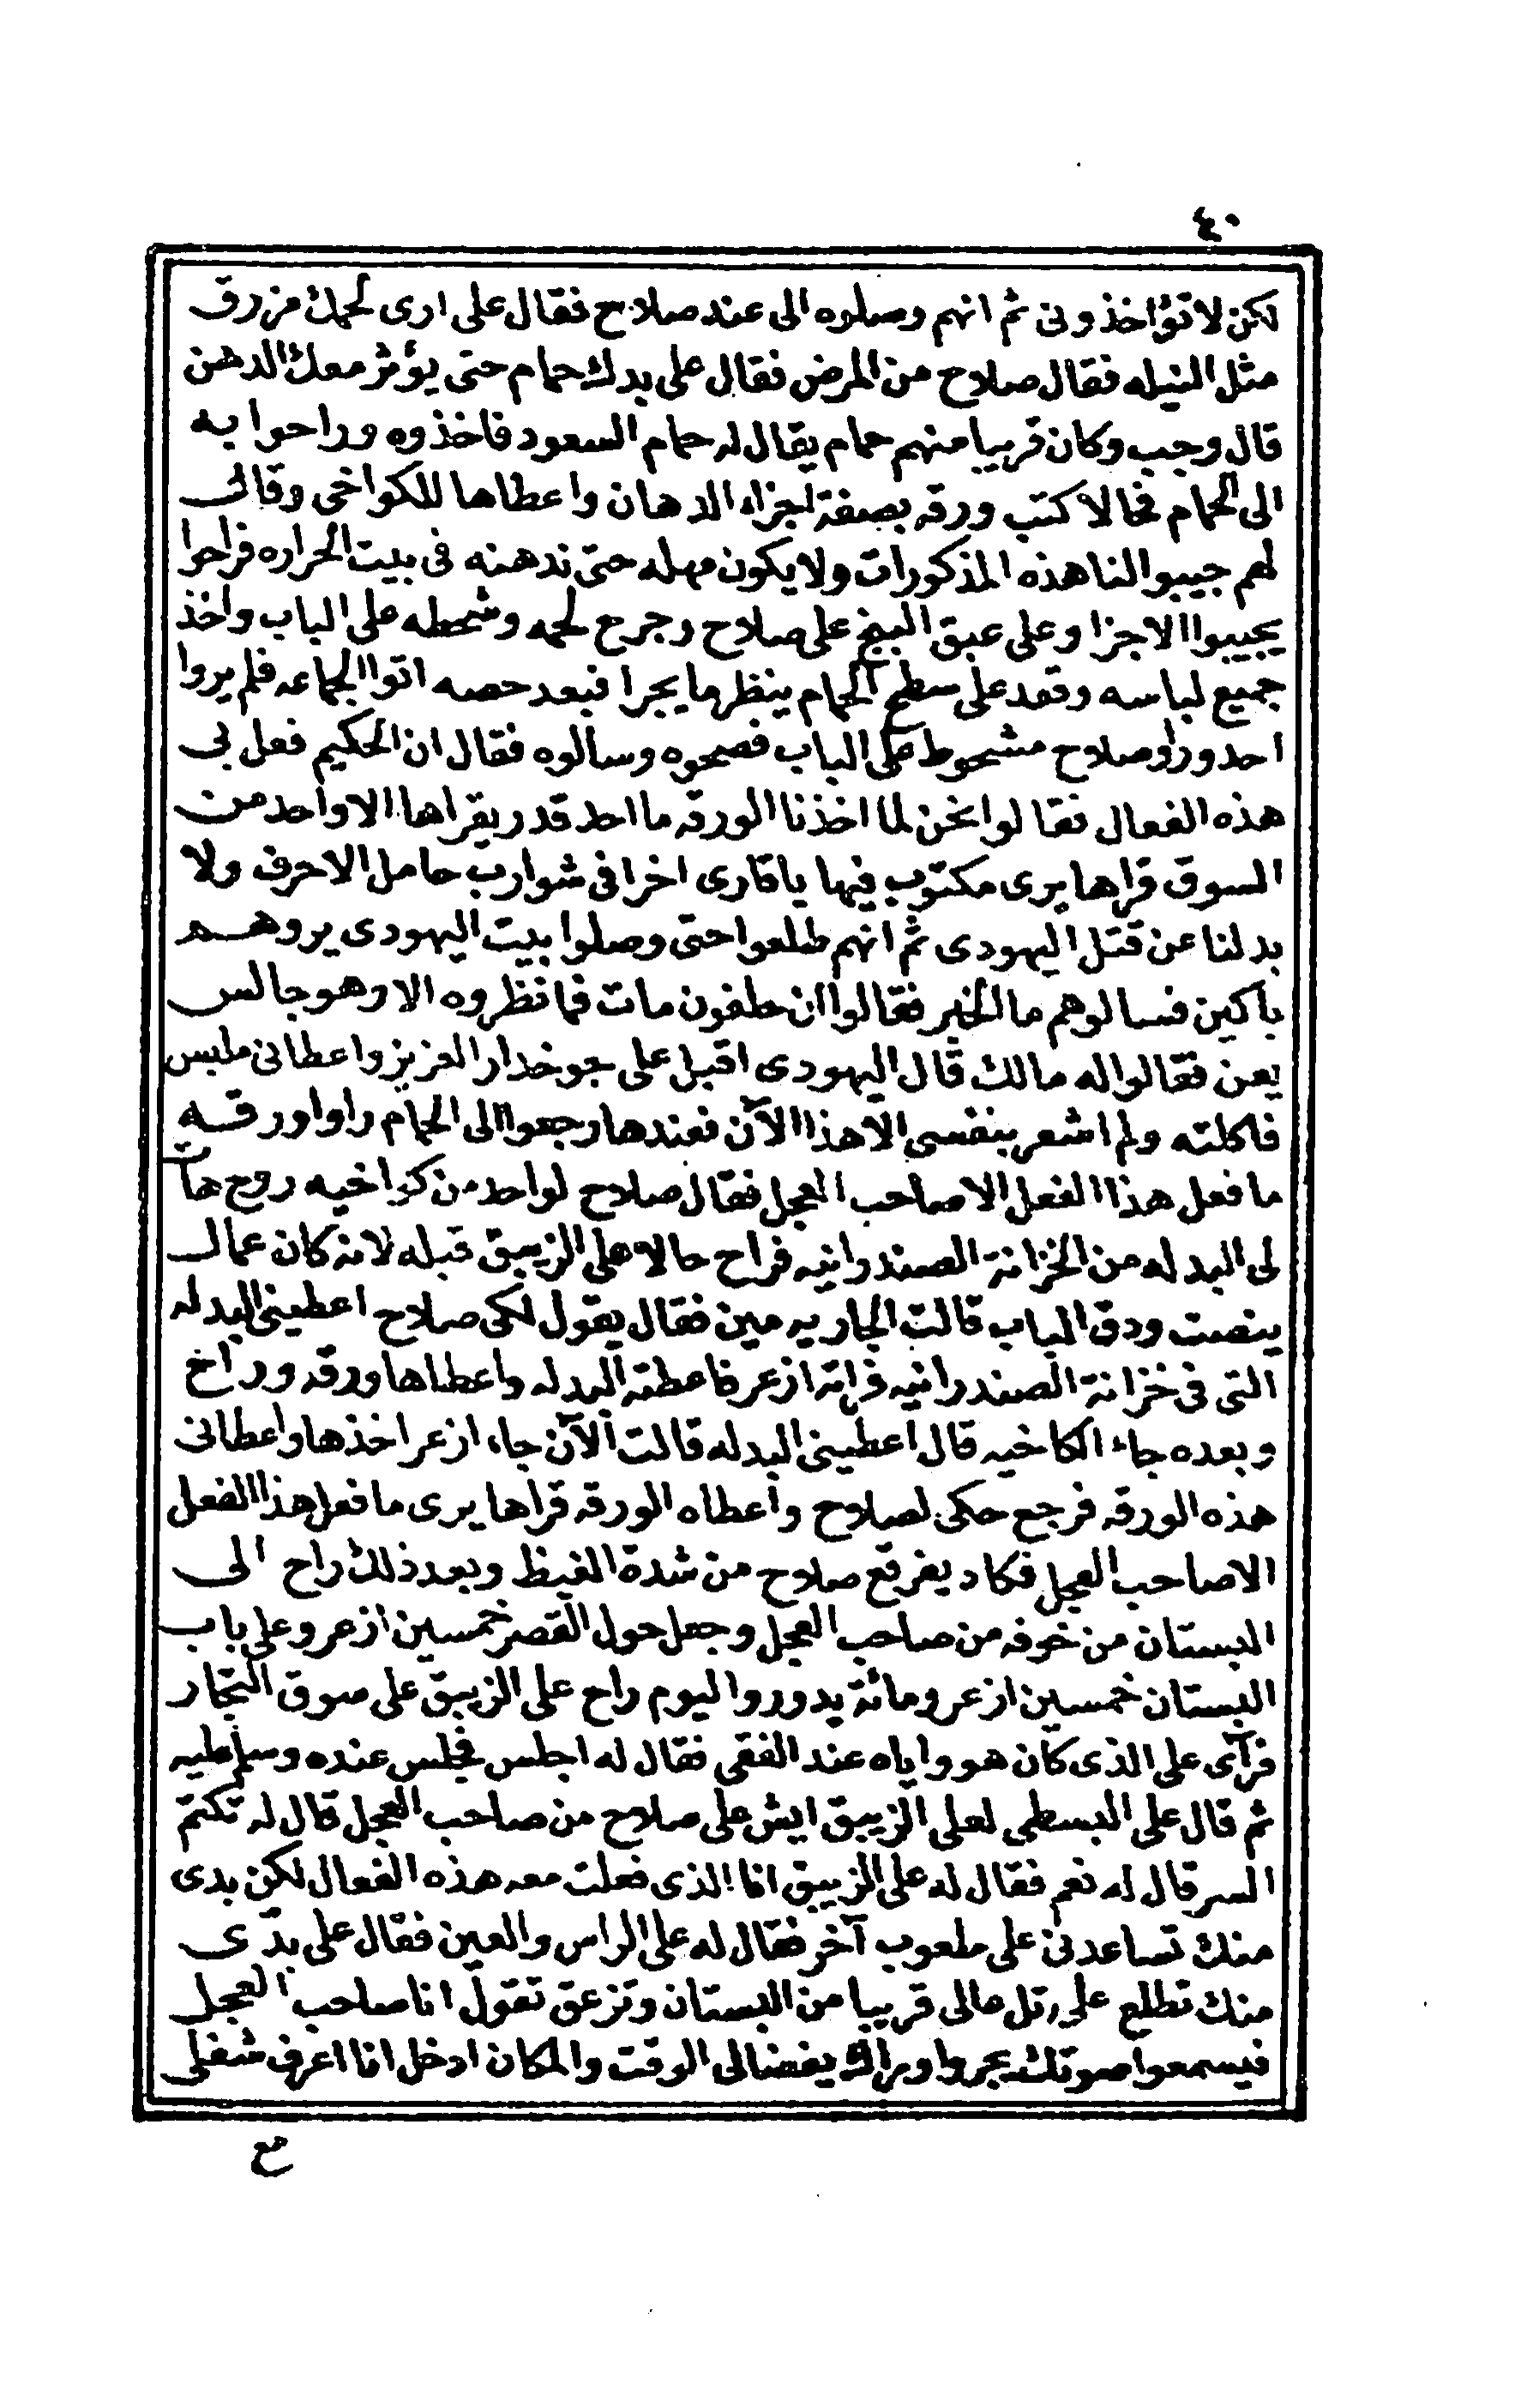 ٤٠
لكن لا تؤاخذونى ثم انهم وصلوه الى عند صلاح فقال على ارى لحمك مزرق
مثل النيله فقال صلاح من المرض فقال على بدك حمام حتى يؤثر معك الدهن
قال وجب وكان قريبا منهم حمام يقال له حمام السعود فاخذوه وراحوا به
الى الحمام فحالا كتب ورقه بصفة اجزاء الدهان واعطاها للكواخى وقال
لهم جيبوا لنا هذه المذكورات ولا يكون مهله حتى ندهنه فى بيت الحراره فراحوا
يجيبوا الاجزا وعلى عبق البنج على صلاح وجرح لحمه وشحطه على الباب واخذ
جميع لباسه وقعد على سطح الحمام ينظر ما يجرا فبعد حصه اتوا الجماعه فلم يروا
احد وراوا صلاح مشحوط على الباب فصحوه وسالوه فقال ان الحكيم فعل بى
هذه الفعال فقالوا نحن لما اخذنا الورقه ما احد قدر يقراها الا واحد من
السوق قراها يرى مكتوب فيها يا قارى اخرا فى شوارب حامل الاحرف ولا
بد لنا عن قتل اليهودى ثم انهم طلعوا حتى وصلوا بيت اليهودى يروهم
باكين فسالوهم ما الخبر فقالوا ان حلفون مات فما نظروه الا وهو جالس
يعن فقالوا له مالك قال اليهودى اقبل على جوخدار العزيز واعطانى ملبس
فاكلته ولم اشعر بنفسى الا هذا الآن فعندها رجعوا الى الحمام راوا ورقه
ما فعل هذا الفعل الا صاحب العجل فقال صلاح لواحد من كواخيه روح هات
لى البدله من الخزانة الصندرانيه فراح حالا على الزيبق قبله لانه كان عمال
ينصت ودق الباب قالت الجاريه مين فقال يقول لكى صلاح اعطينى البدله
التى فى خزانة الصندرانيه فراته ازعر فاعطته البدله واعطاها ورقه وراح
وبعده جاء الكاخيه قال اعطينى البدله قالت الآن جاء ازعر اخذها واعطانى
هذه الورقه فرجع حكى لصلاح واعطاه الورقه قراها يرى ما فعل هذا الفعل
الا صاحب العجل فكاد يفرقع صلاح من شدة الغيظ وبعد ذلك راح الى
البستان من خوفه من صاحب العجل وجعل حول القصر خمسين ازعر وعلى باب
البستان خمسين ازعر ومائة يدوروا اليوم راح على الزيبق على سوق التجار
فرآى على الذى كان هو واياه عند الفقى فقال له اجلس فجلس عنده وسلم عليه
ثم قال على البسطى لعلى الزيبق ايش على صلاح من صاحب العجل قال له تكتم
السر قال له نعم فقال له على الزيبق انا الذى فعلت معه هذه الفعال لكن بدى
منك تساعدنى على ملعوب آخر فقال له على الراس والعين فقال على بدّى
منك تطلع على تل عالى قريبا من البستان وتزعق تقول انا صاحب العجل
فيسمعوا صوتك يجروا وراك يفضالى الوقت والمكان ادخل انا اعرف شغلى
مع